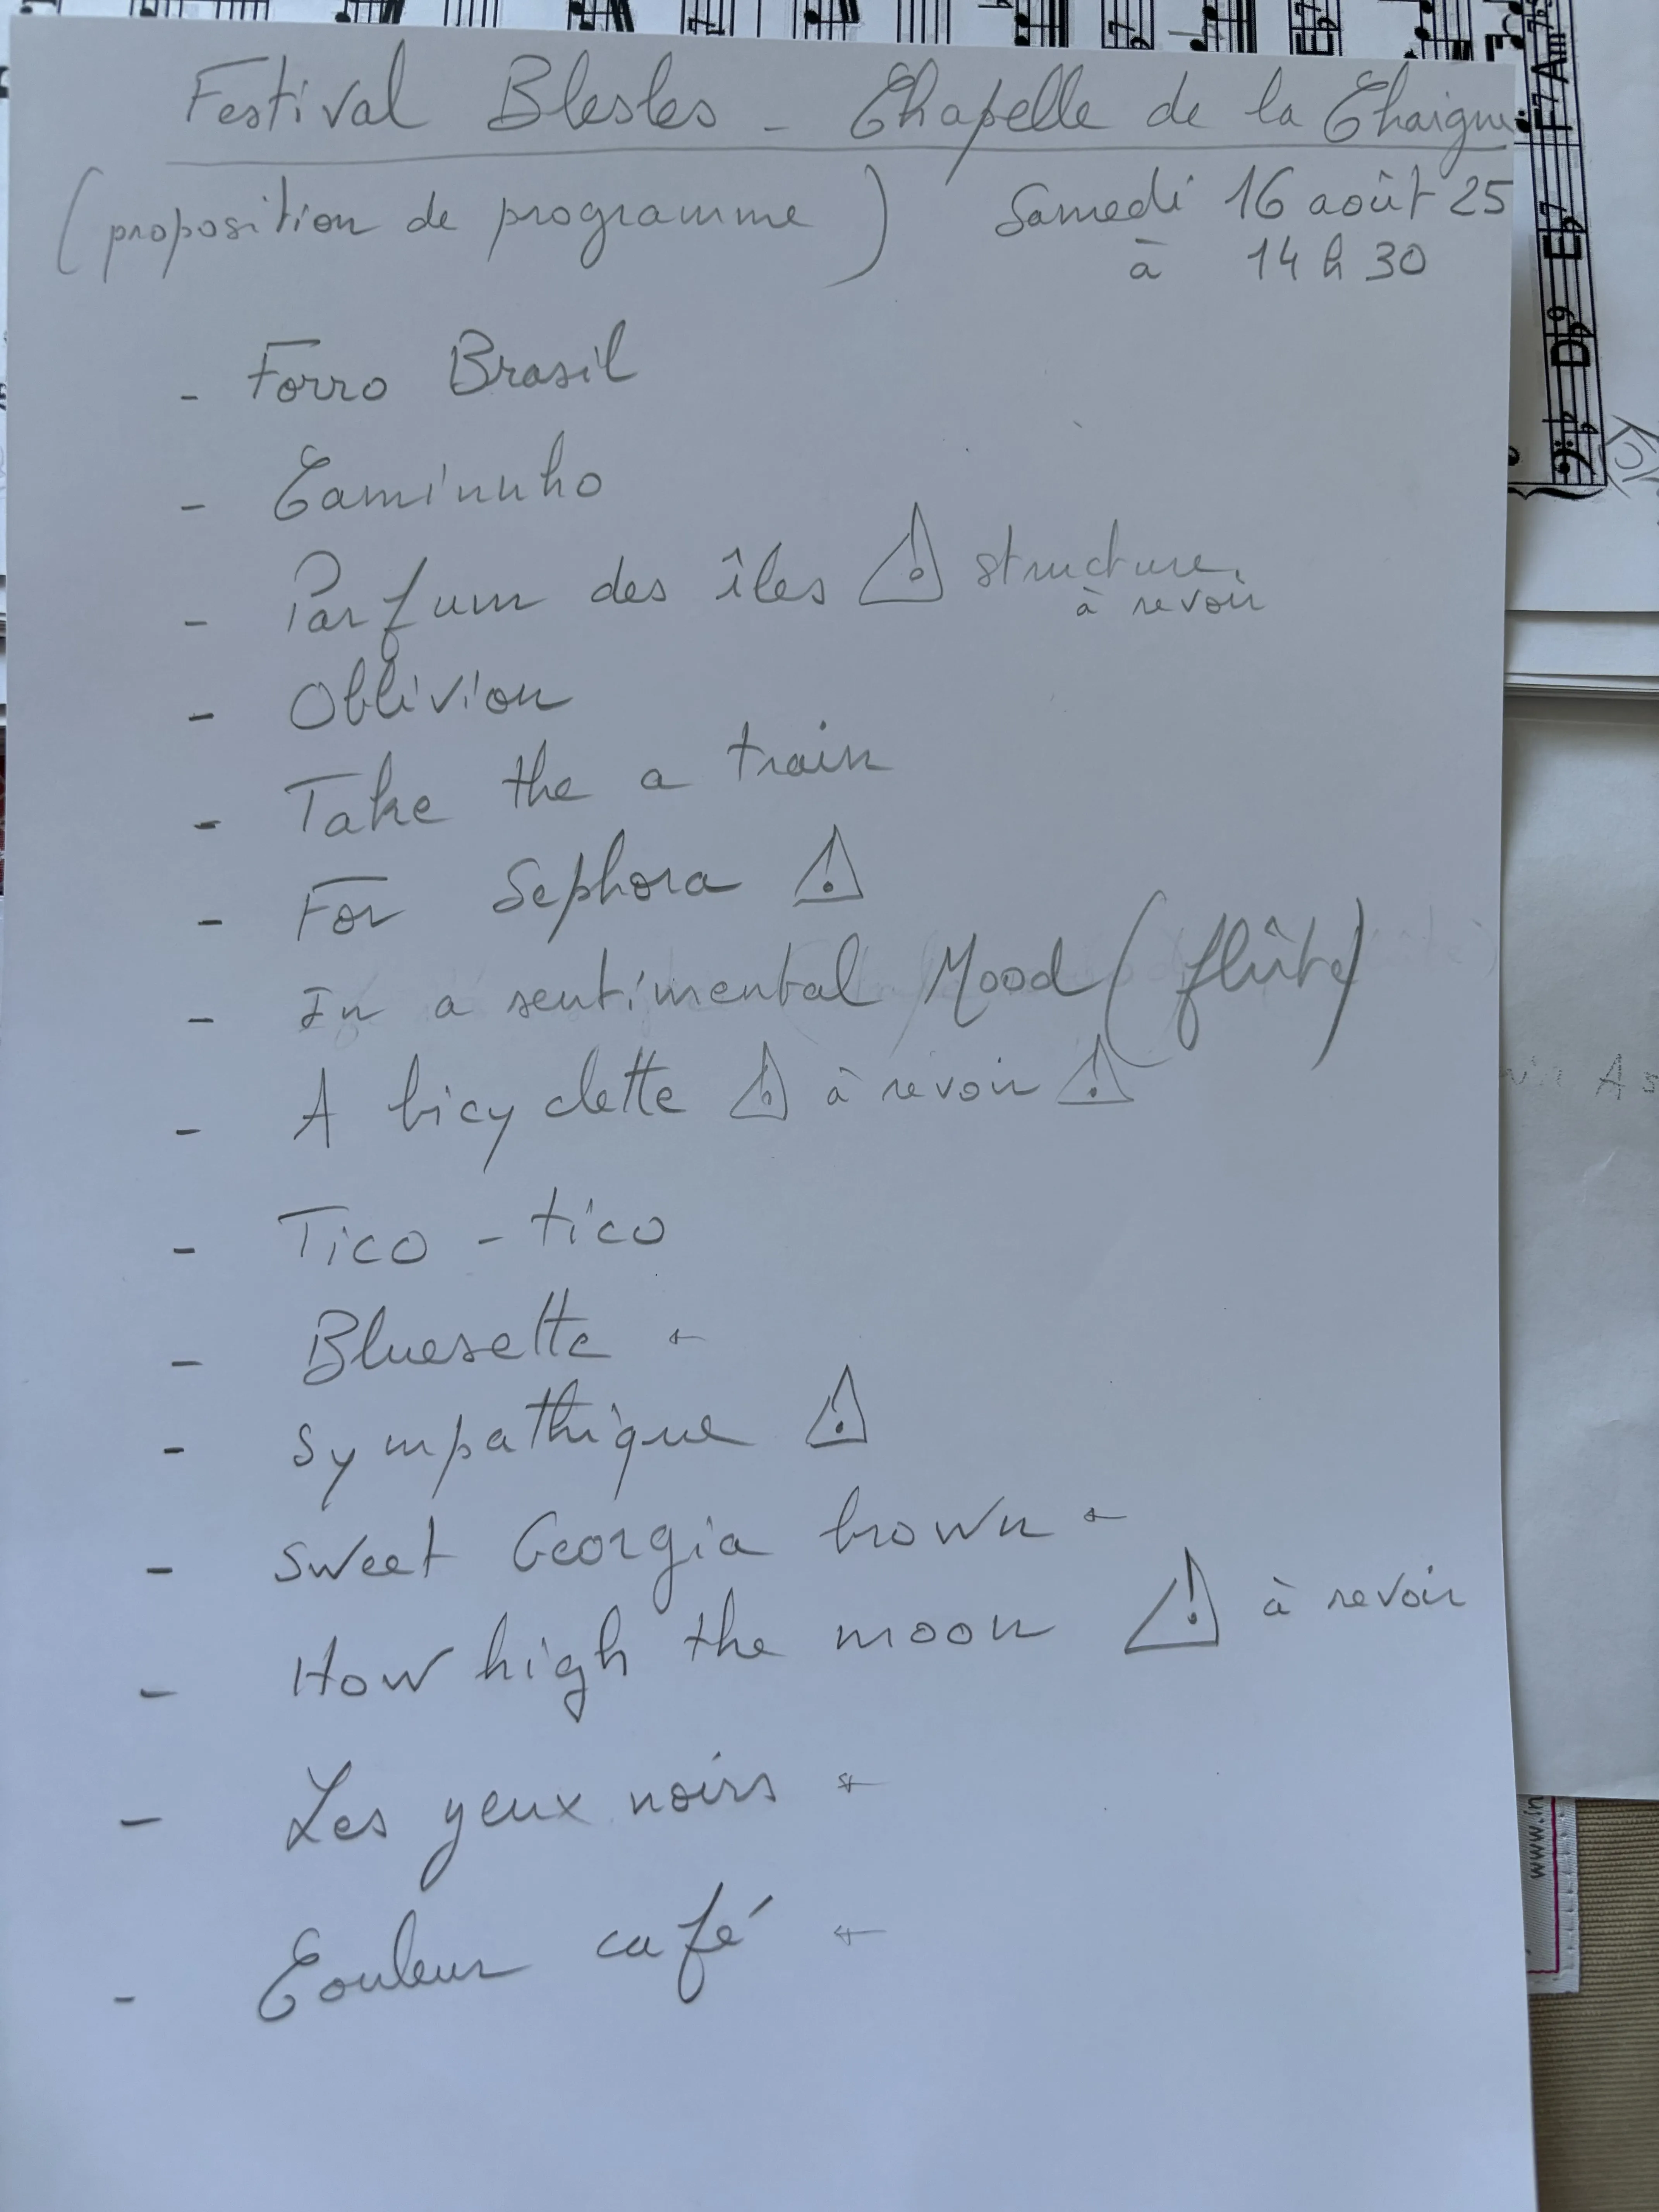 Festival Blesles - Chapelle de la Chaigne
(proposition de programme) Samedi 16 août 25
à 14 h 30
- Forro Brasil
- Caminuho
- Parfum des îles ⚠ structure
à revoir
- Oblivion
- Take the a train
- For Sephora ⚠
- In a sentimental Mood (flûte)
- A bicyclette ⚠ à revoir ⚠
- Tico - tico
- Bluesette ←
- Sympathique ⚠
- Sweet Georgia brown ←
- How high the moon ⚠ à revoir
- Les yeux noirs ←
- Couleur café ←
F7 Am7b5
Db9 Eb7
www.in